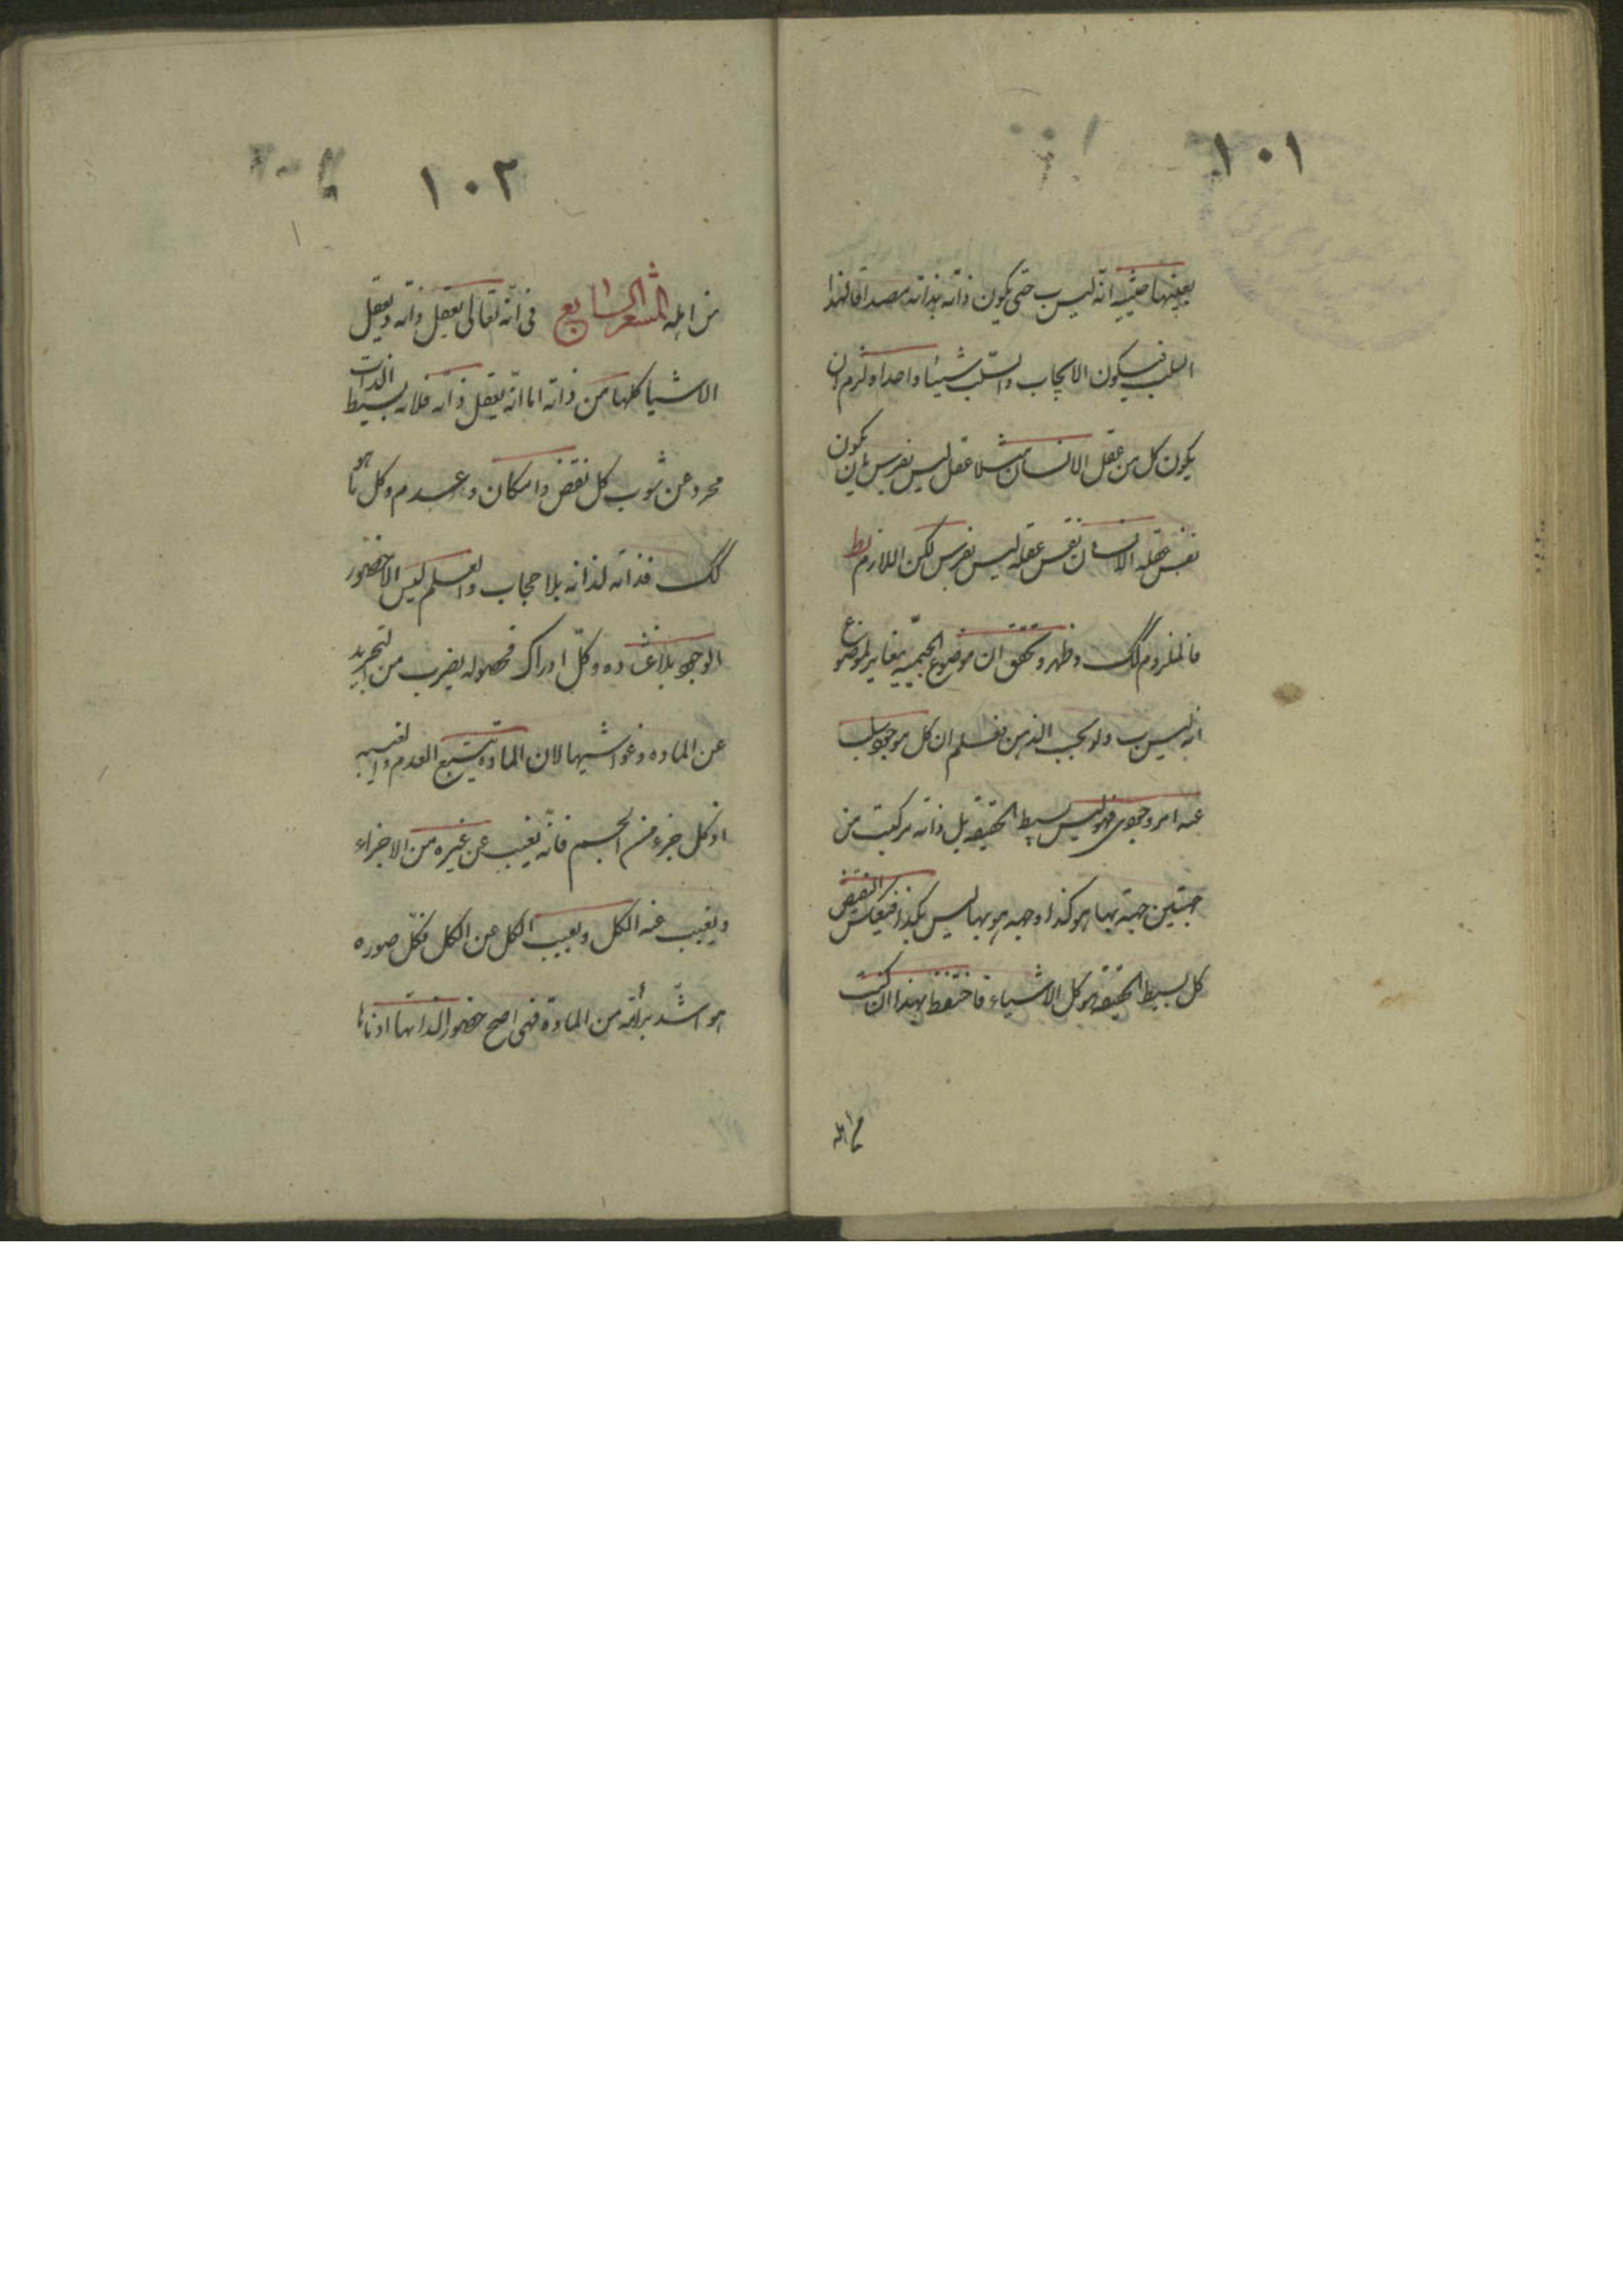 ١٠١
بعينها حيثية انه ليس ب حتى يكون ذاته بذاته مصداقا لهذا
السلب فيكون الايجاب والسلب شيئا واحدا ولزم ان
يكون كل من عقل الانسان مثلا عقل ليس بفرس بان يكون
نفس عقله الانسان نفس عقله ليس بفرس لكن اللازم بط
فالملزوم كك وظهر وتحقق ان موضوع الجيميه مغاير لموضوع
انه ليس ب ولو بحسب الذهن فعلم ان كل موجود سلب
عنه امر وجودى فهو ليس بسيط الحقيقه بل ذاته مركبت من
جهتين جهة بها هو كذا وجهه هو بها ليس بكذا فبعكس النقيض
كل بسيط الحقيقه هو كل الاشياء فاحتفظ بهذا ان كنت
من اهله
١٠٢
من اهله المشعر السابع فى انه تعالى يعقل ذاته ويعقل
الاشيا كلها من ذاته اما انه يعقل ذاته فلانه بسيط الذات
مجرد عن شوب كل نقص وامكان وعدم وكل ما هو
كك فذاته لذاته بلا حجاب والعلم ليس الا حضور
الوجود بلا غشاوه وكل ادراك فحصوله بضرب من التجريد
عن الماده وغواشيها لان المادة منبع العدم والغيبه
اذ كل جزء من الجسم فانه يغيب عن غيره من الاجزاء
ويغيب عنه الكل ويغيب الكل عن الكل فكل صوره
هو اشد برأئة من المادة فهى اصح حضورا لذاتها ادناها